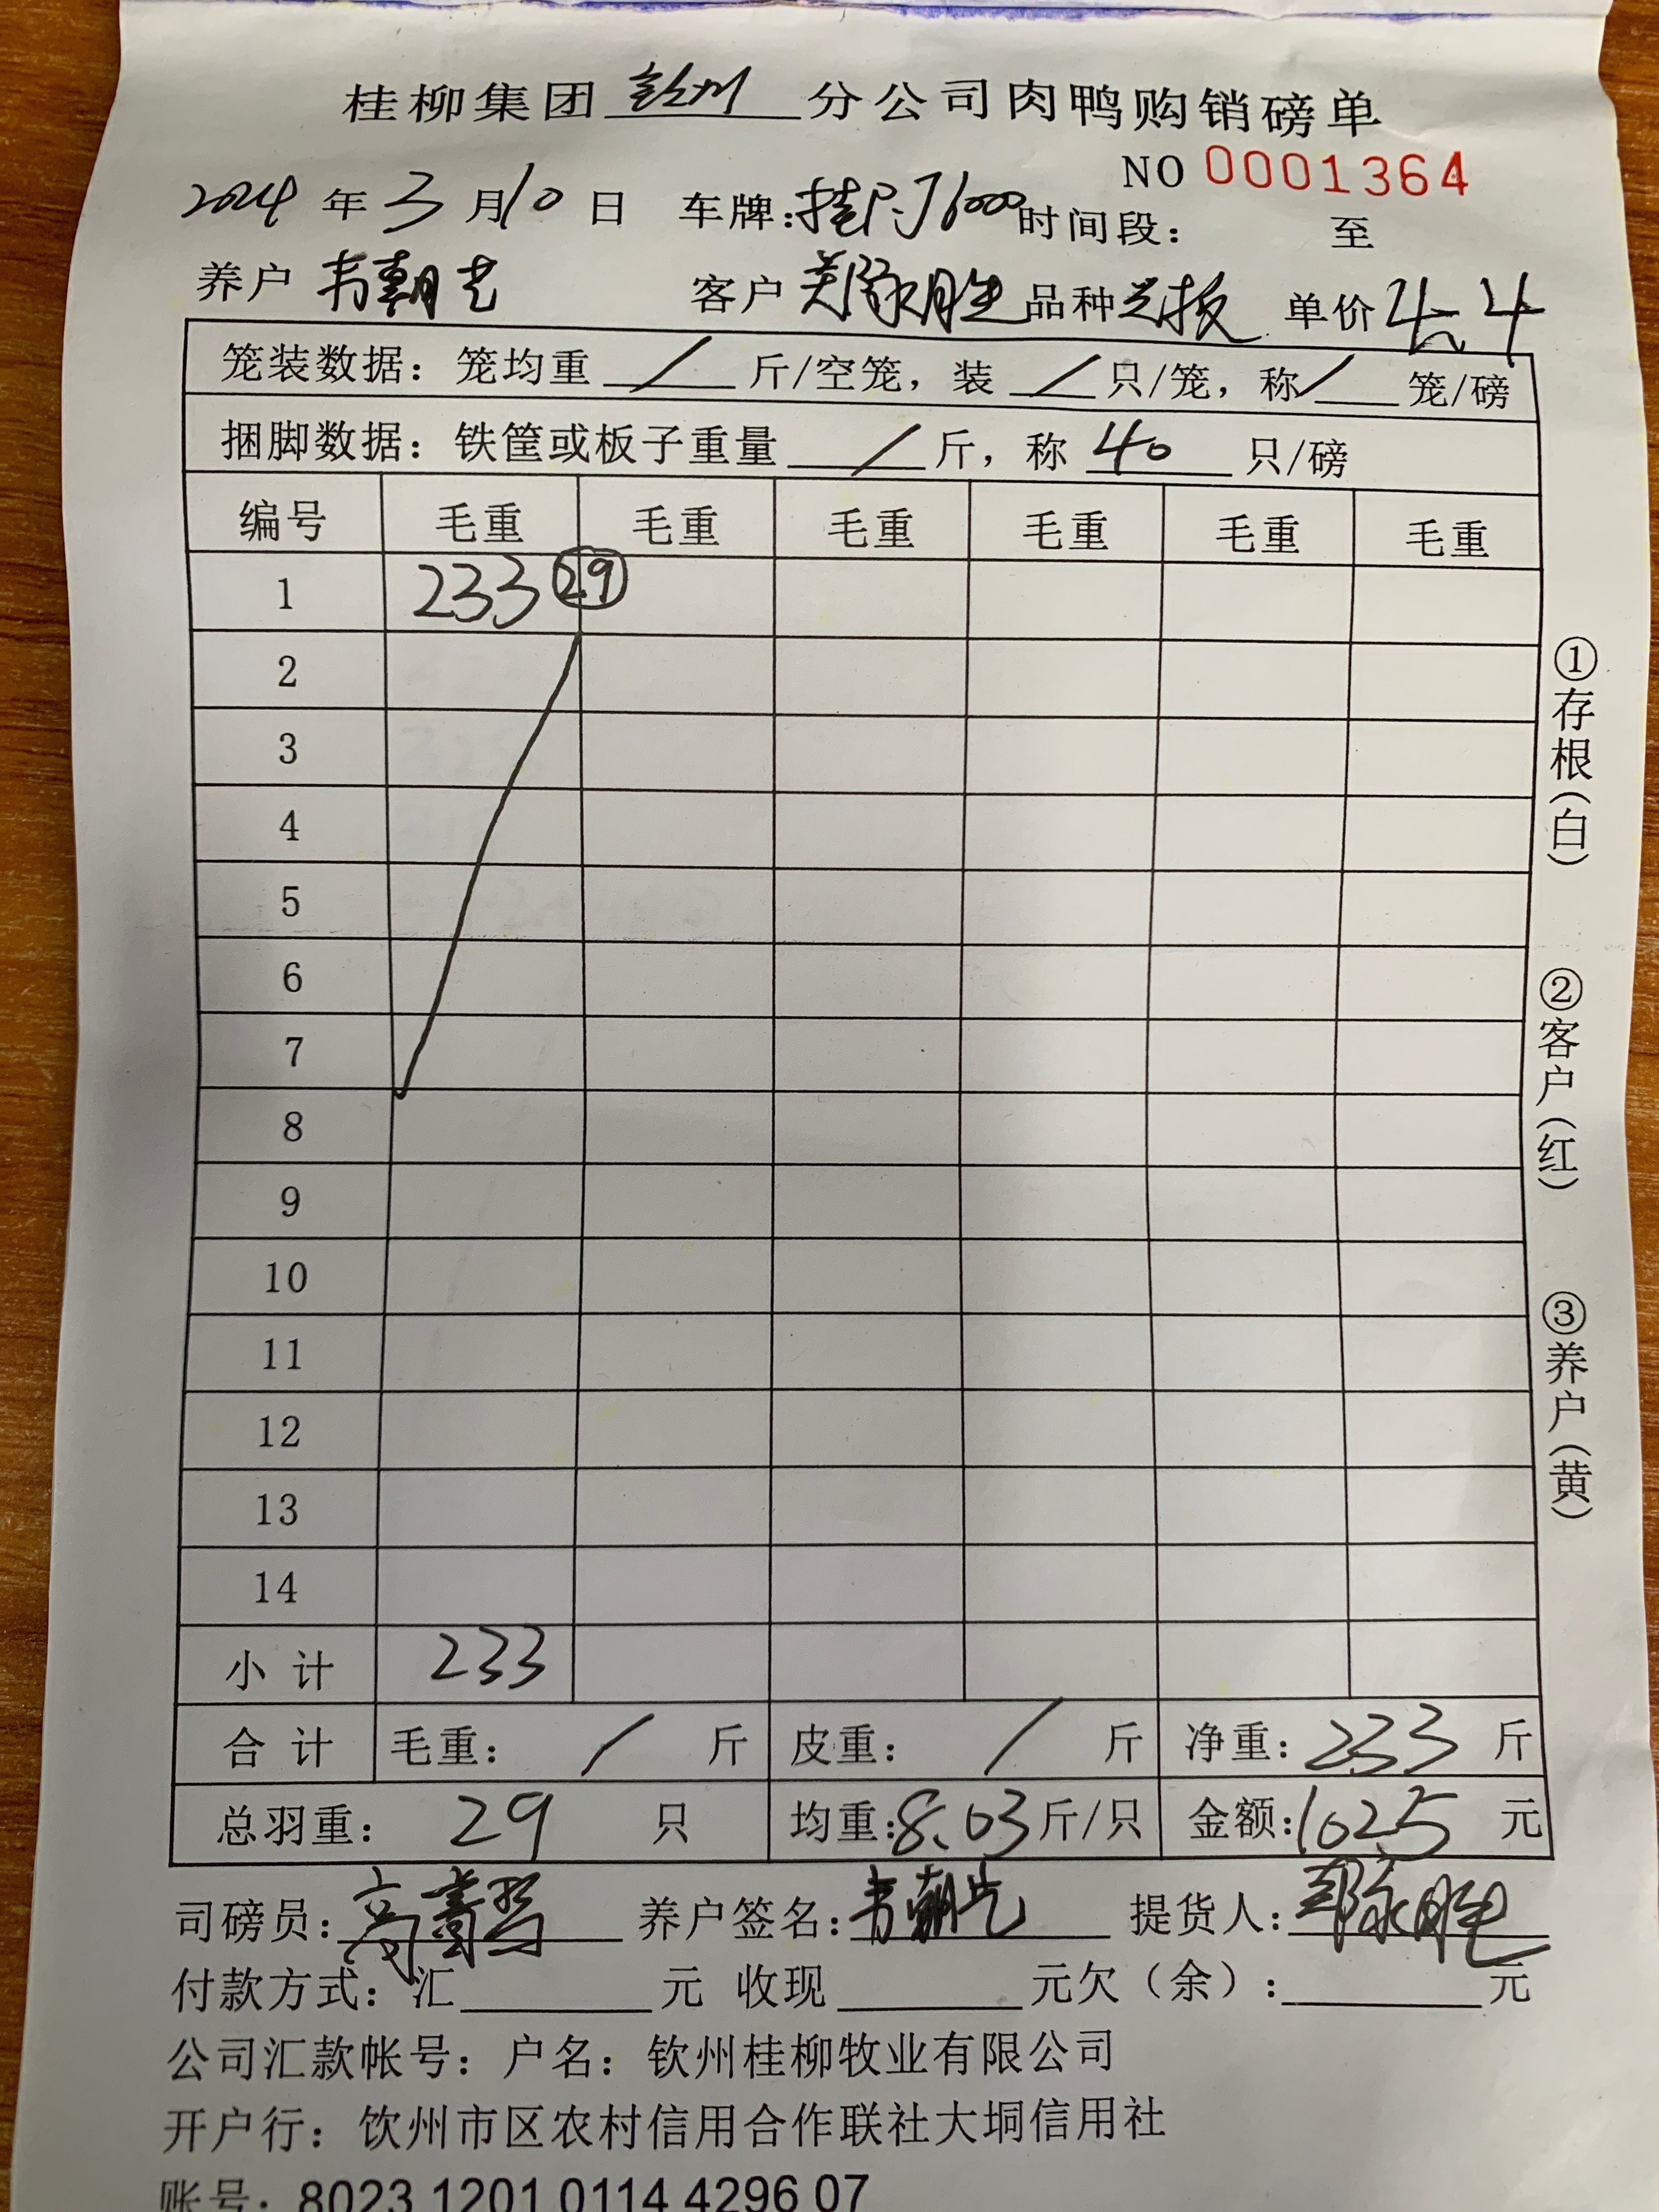 桂柳集团 钦州 分公司肉鸭购销磅单
NO 0001364
2024 年 3 月 10 日 车牌: 6000 时间段: 至
养户 韦朝艺 客户 郑永胜 品种 单价 4.4
笼装数据: 笼均重 / 斤/空笼, 装 / 只/笼, 称 / 笼/磅
捆脚数据: 铁筐或板子重量 / 斤, 称 40 只/磅
编号 毛重 毛重 毛重 毛重 毛重 毛重
1 233 29
2
3
4
5
6
7
8
9
10
11
12
13
14
小计 233
合计 毛重: / 斤 皮重: / 斤 净重: 233 斤
总羽重: 29 只 均重: 8.03 斤/只 金额: 1025 元
司磅员: 高 养户签名: 韦朝艺 提货人: 郑永胜
付款方式: 汇 元 收现 元欠(余): 元
公司汇款帐号: 户名: 钦州桂柳牧业有限公司
开户行: 钦州市区农村信用合作联社大垌信用社
账号: 8023 1201 0114 4296 07
①存根(白)
②客户(红)
③养户(黄)